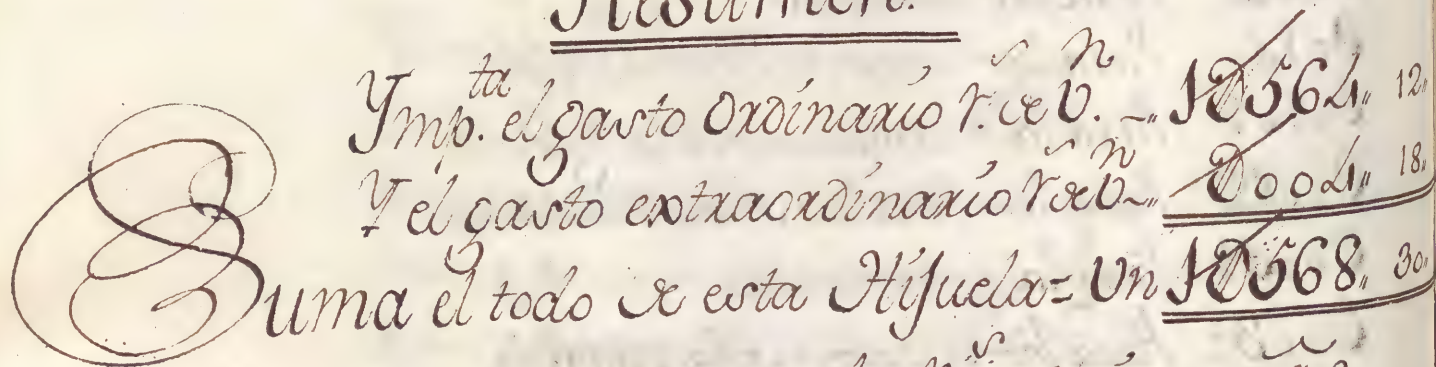 Resumen.
Ymp.ta el gasto Ordinario r.s de v.n 1U564,, 12,,
Y el gasto extraordinario r.s de v.n U004,, 18,,
Suma el todo de esta Hijuela = Un 1U568,, 30,,